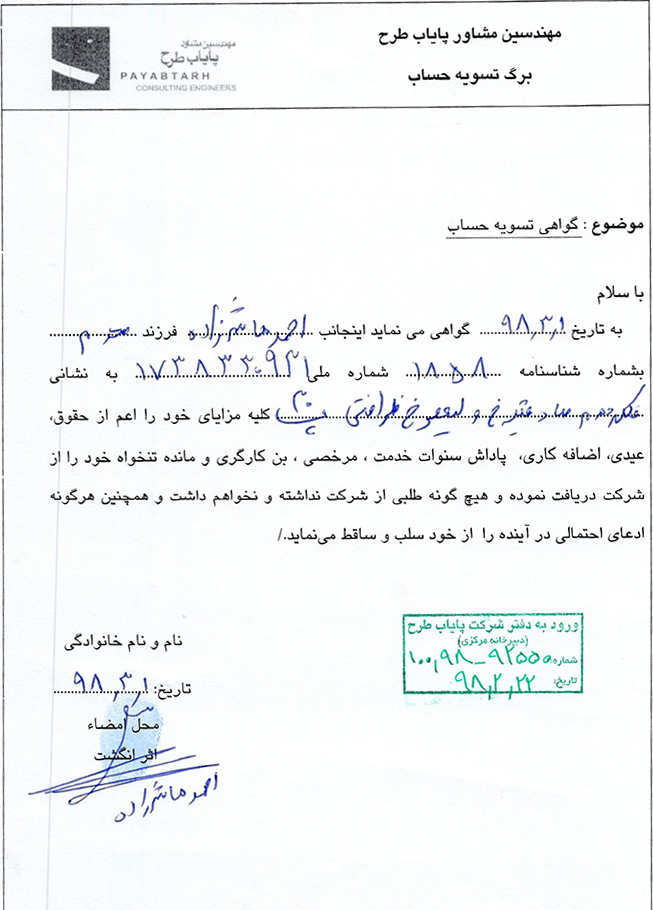 مهندسین مشاور پایاب طرح
برگ تسویه حساب
مهندسین مشاور
پایاب طرح
PAYABTARH
CONSULTING ENGINEERS
موضوع : گواهی تسویه حساب
با سلام
به تاریخ ۹۸,۳,۱ گواهی می نماید اینجانب احمد هاشم زاده فرزند
بشماره شناسنامه ۱۸۵۸ شماره ملی ۱۷۳۸۳۳۰۹۳۱ به نشانی
کلیه مزایای خود را اعم از حقوق،
عیدی، اضافه کاری، پاداش سنوات خدمت ، مرخصی ، بن کارگری و مانده تنخواه خود را از
شرکت دریافت نموده و هیچ گونه طلبی از شرکت نداشته و نخواهم داشت و همچنین هرگونه
ادعای احتمالی در آینده را از خود سلب و ساقط می‌نماید./
ورود به دفتر شرکت پایاب طرح
(دبیرخانه مرکزی)
شماره: ۱۰۰,۹۸-۹۲۵۵۵
تاریخ: ۹۸,۲,۲۲
نام و نام خانوادگی
تاریخ: ۹۸,۳,۱
محل امضاء
اثر انگشت
احمد هاشم زاده